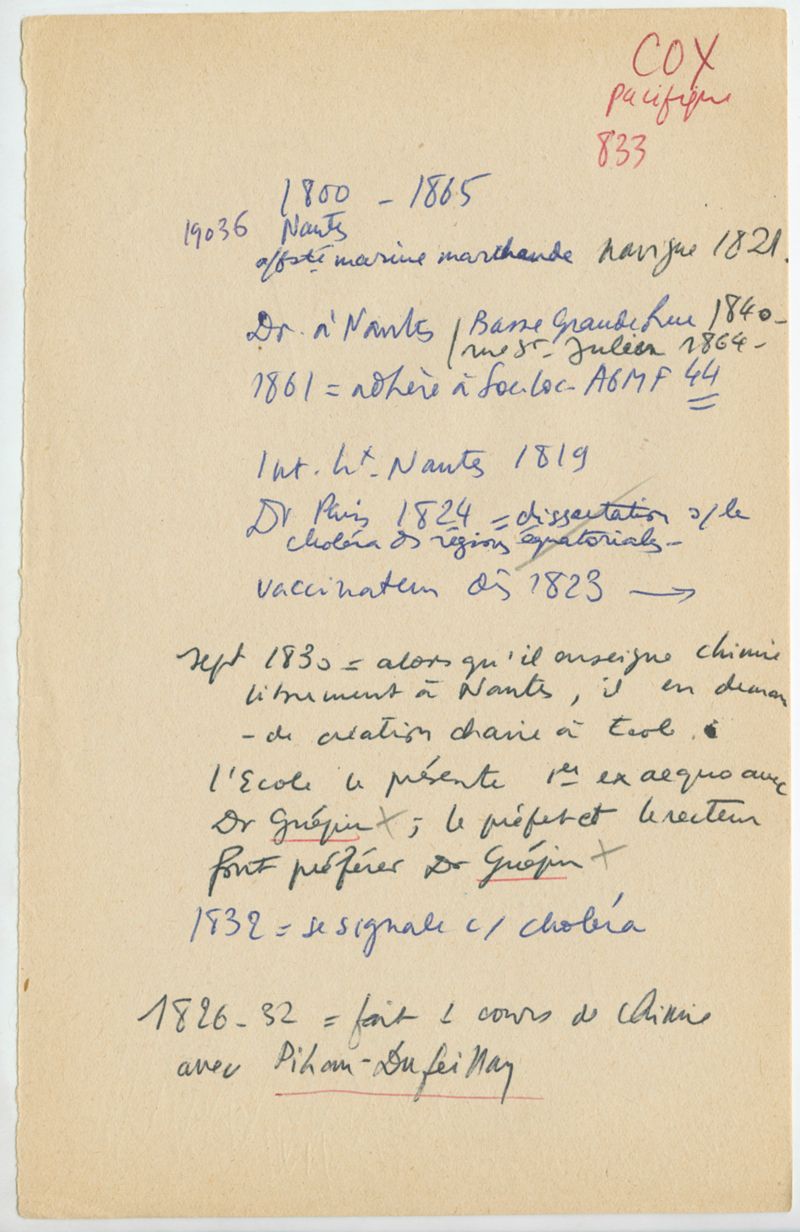 COX
Pacifique
833
1800 - 1865
19036 Nantes
marine marchande navigue 1821.
Dr. à Nantes / Basse Grande Rue 1840-
/ rue St-Julien 1864-
1861 = adhère à AGMF 44
Int. Nantes 1819
Dr Paris 1824 = dissertation s/ le
choléra ds régions équatoriales-
vaccinateur dès 1823 →
Sept 1830 = alors qu'il enseigne chimie
librement à Nantes, il en deman
-de création chaire à Ecole.
l'Ecole le présente 1er ex aequo avec
Dr Guépin X ; le préfet et le recteur
font préférer Dr Guépin X
1832 = se signale c/ choléra
1826-32 = fait cours de chimie
avec Pihan-Dufeillay